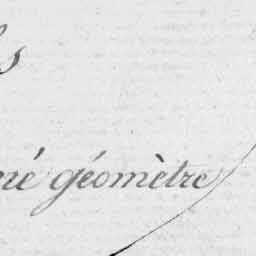 s
né géomètre